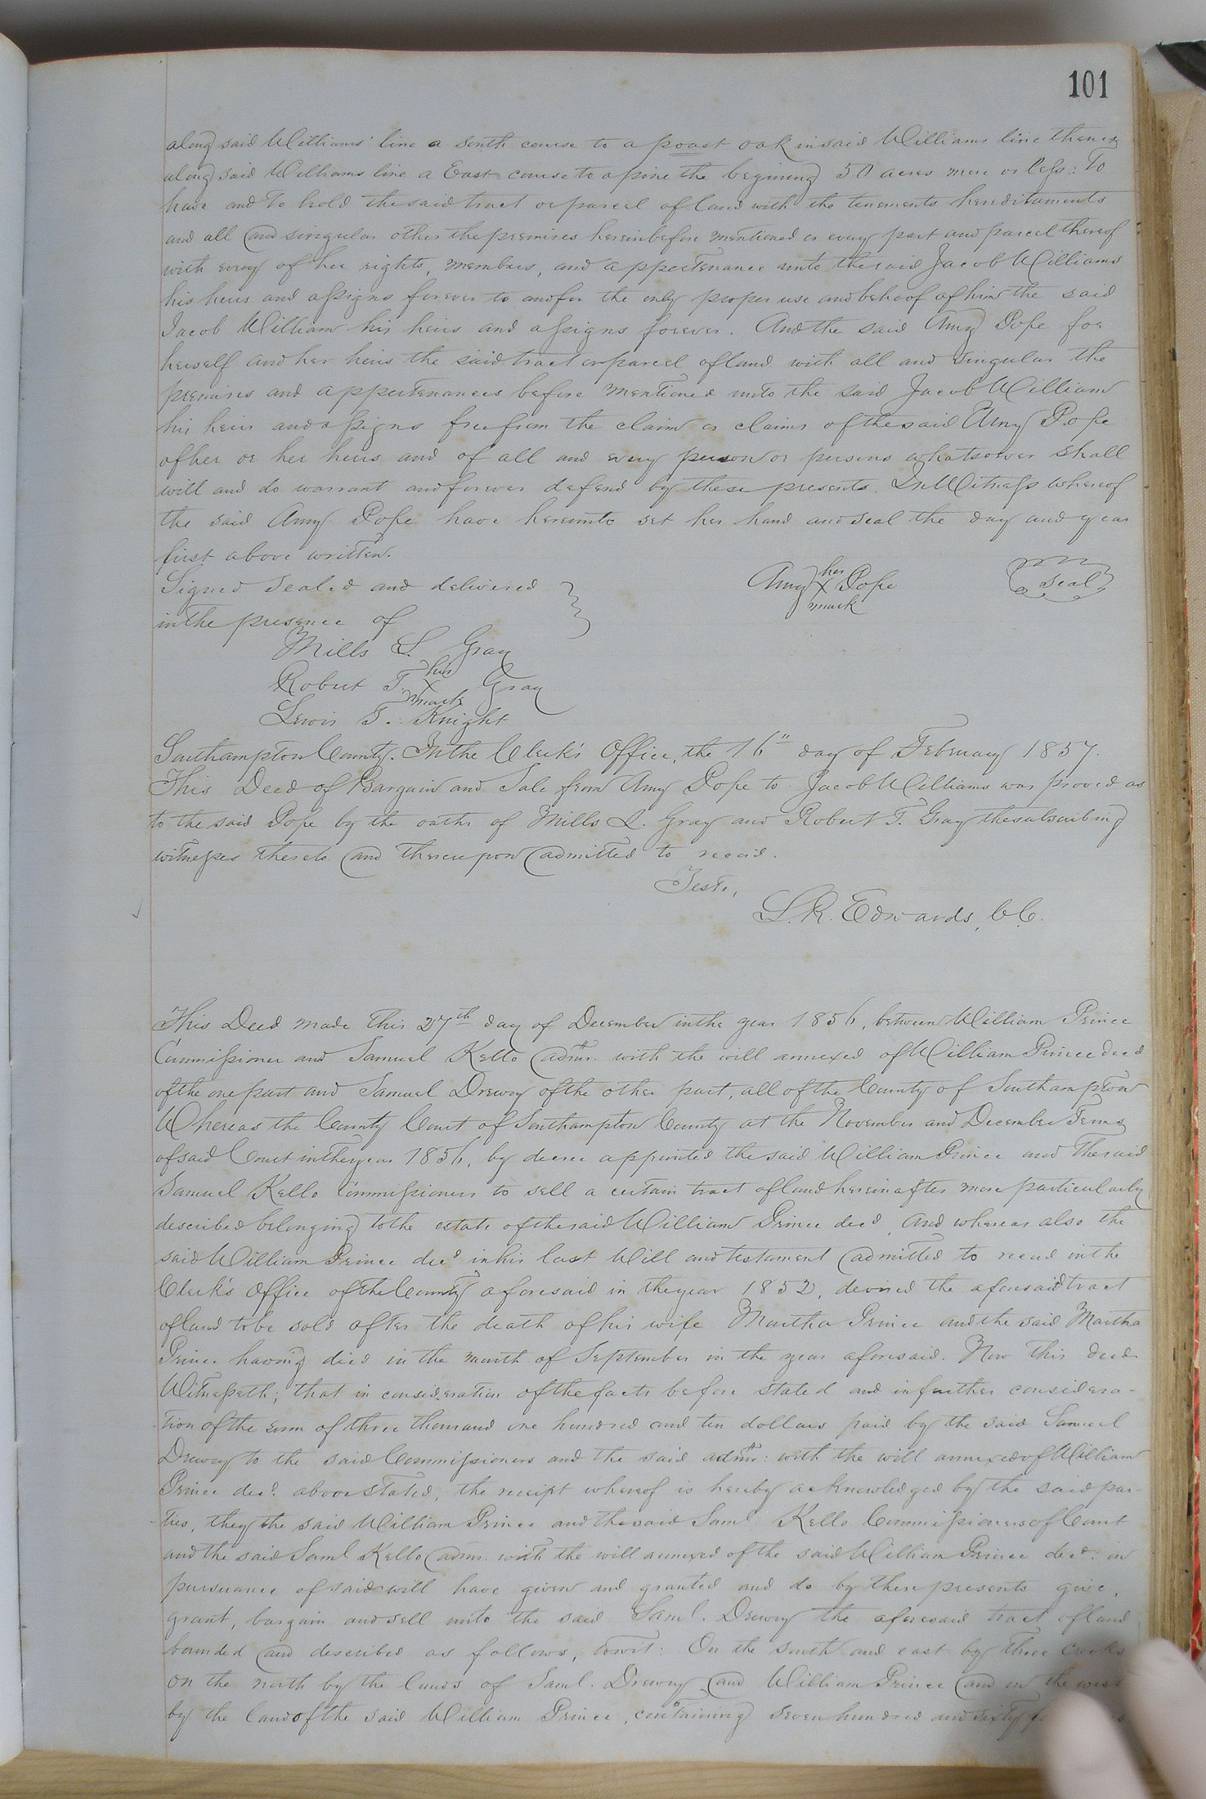 101
along said Williams' line a south course to a poast oak in said Williams line thence
along said Williams line a East course to a pine the begining 50 acres more or less: To
have and to hold the said tract or parcel of land with the tenements hereditaments
and all and singular other the premises hereinbefore mentioned or every part and parcel thereof
with every of her rights, members, and appertenance unto the said Jacob Williams
his heirs and assigns forever to and for the only proper use and behoof of him the said
Jacob William his heirs and assigns forever. And the said Amy Pope for
herself and her heirs the said tract or parcel of land with all and singular the
premises and appertenances before mentioned unto the said Jacob William
his heirs and assigns free from the claim or claims of the said Amy Pope
of her or her heirs and of all and every person or persons whatsoever shall
will and do warrant and forever defend by these presents. In Witness whereof
the said Amy Pope have hereunto set her hand and seal the day and year
first above written.
Signed sealed and delivered
in the presence of
Amy her X mark Pope Seal
Mills L. Gray
Robert T. his X mark Gray
Lewis T. Knight
Southampton County. In the Clerk's Office, the 16" day of February 1857.
This Deed of Bargain and Sale from Amy Pope to Jacob Williams was proved as
to the said Pope by the oaths of Mills L. Gray and Robert T. Gray the subscribing
witnesses thereto and thereupon admitted to record.
Teste,
L. R. Edwards, C.C.
This Deed made this 27th day of December in the year 1856, between William Prince
Commissioner and Samuel Kello admr. with the will annexed of William Prince decd
of the one part and Samuel Drewry of the other part, all of the County of Southampton
Whereas the County Court of Southampton County at the November and December Terms
of said Court in the year 1856, by decree appointed the said William Prince and the said
Samuel Kello Commissioners to sell a certain tract of land hereinafter more particularly
described belonging to the estate of the said William Prince decd. And whereas also the
said William Prince decd in his last Will and testament admitted to record in the
Clerk's Office of the County aforesaid in the year 1852, devised the aforesaid tract
of land to be sold after the death of his wife Martha Prince and the said Martha
Prince having died in the month of September in the year aforesaid. Now this deed
Witnesseth; that in consideration of the facts before stated and in further considera-
tion of the sum of three thousand one hundred and ten dollars paid by the said Samuel
Drewry to the said Commissioners and the said admr: with the will annexed of William
Prince decd. above stated, the receipt whereof is hereby acknowledged by the said par-
ties, they the said William Prince and the said Saml Kello Commissioners of Court
and the said Saml Kello admr. with the will annexed of the said William Prince decd. in
pursuance of said will have given and granted and do by these presents give,
grant, bargain and sell unto the said Saml. Drewry the aforesaid tract of land
bounded and described as follows, towit: On the south and east by Three Creeks
on the north by the lands of Saml. Drewry and William Prince and on the west
by the land of the said William Prince, containing seven hundred and sixty